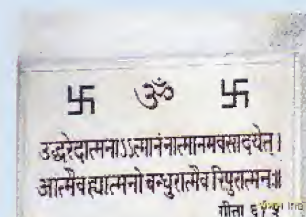 卐 ॐ 卐
उद्धरेदात्मनाऽऽत्मानंनात्मानमवसादयेत्।
आत्मैवह्यात्मनोबन्धुरात्मैव रिपुरात्मनः॥
गीता ६